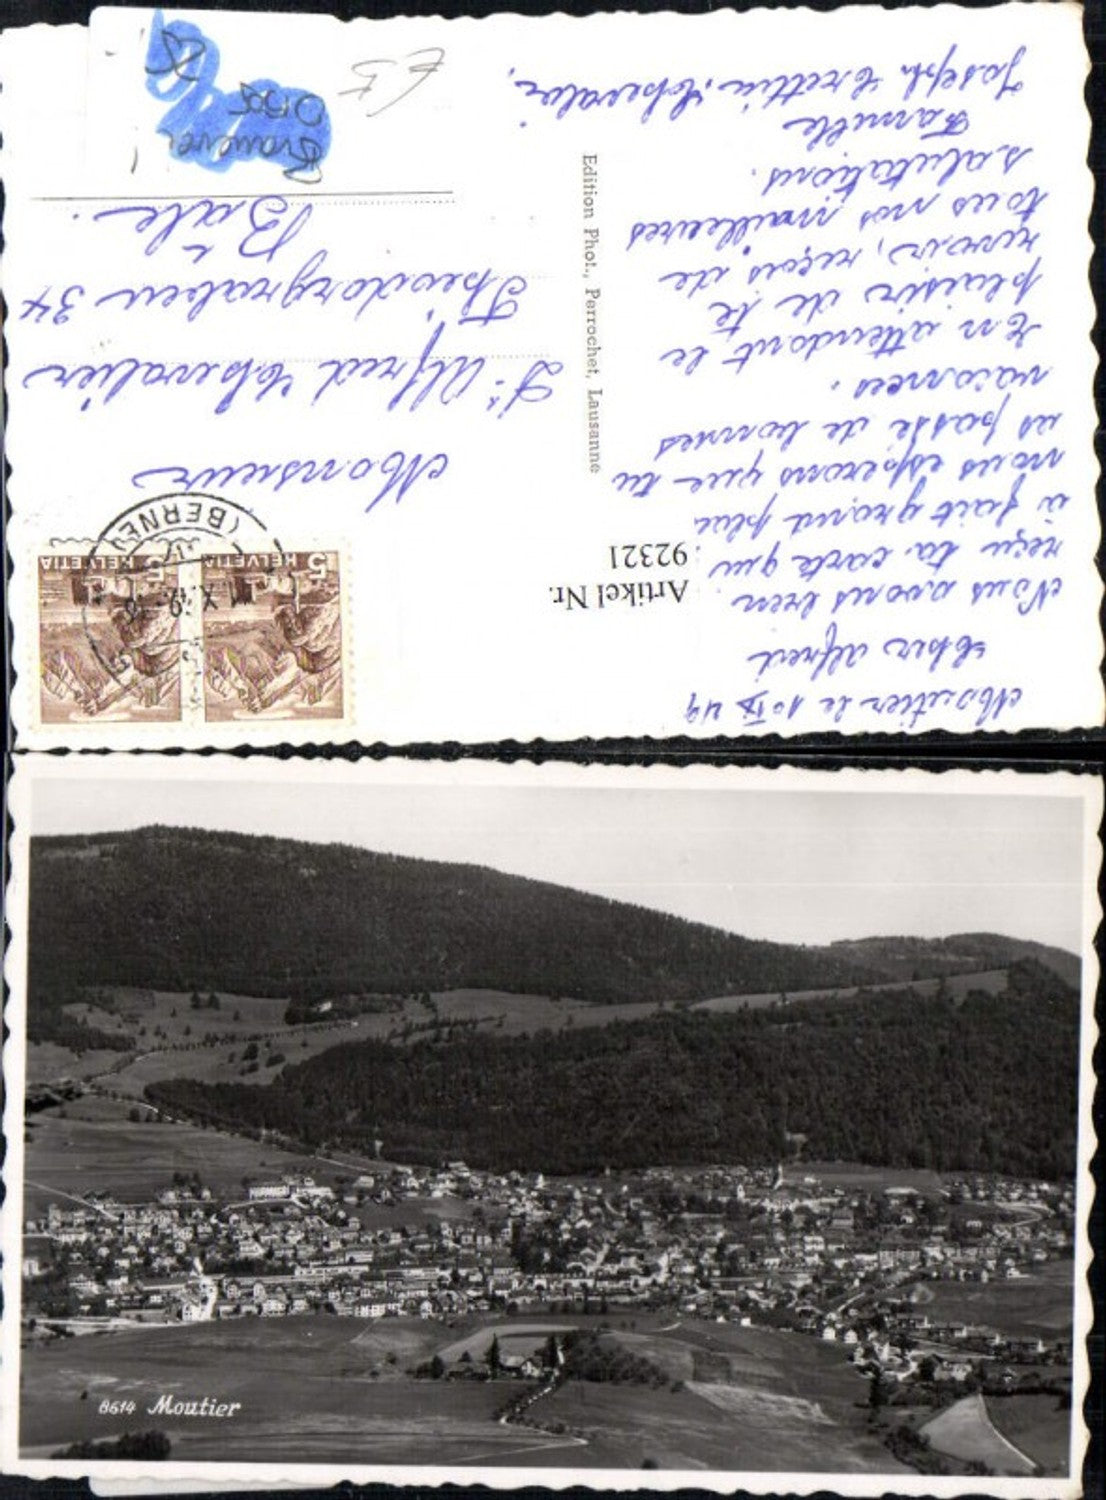 Moutier le 10 IX 49
Cher Alfred
Nous avons bien
reçu ta carte qui
a fait grand plai
nous esperons que tu
as passé de bonnes
vacances.
En attendant le
plaisir de te
revoir, reçois de
tous nos meilleures
salutations.
Famille
Joseph Crettin-Chevalier
Edition Phot., Perrochet, Lausanne
Artikel Nr.
92321
(BERNE)
HELVETIA 5
HELVETIA 5
Monsieur
Alfred Chevalier
Theodorsgraben 34
Bâle.
€ 5
8614 Moutier